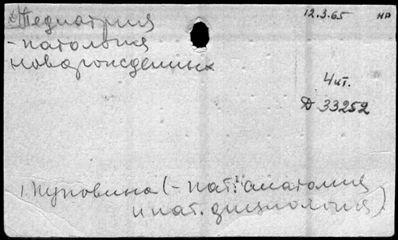 Педиатрия
12.3.65
нр
- патология
новорожденных
4 шт.
Д 33252
1. Пуповина (- пат. анатомия
и пат. физиология)